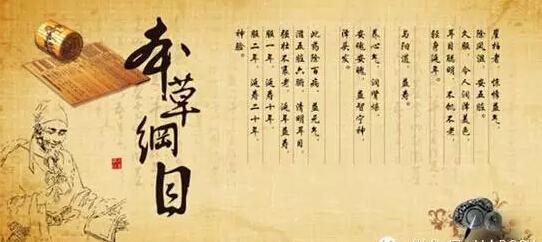 崖柏者，恢修益气，
除风湿，安五脏。
久服，令人润泽美色，
耳目聪明，不饥不老，
轻身延年。
与阳道，益寿。
养心气，润肾燥，
安魂安魄，益智宁神，
泽头发。
此药除百病，益元气，
滋五脏六腑，清明耳目，
强壮不衰老，延年益寿，
服一年，延寿十年，
服二年，延寿二十年，
神验。
本草綱目